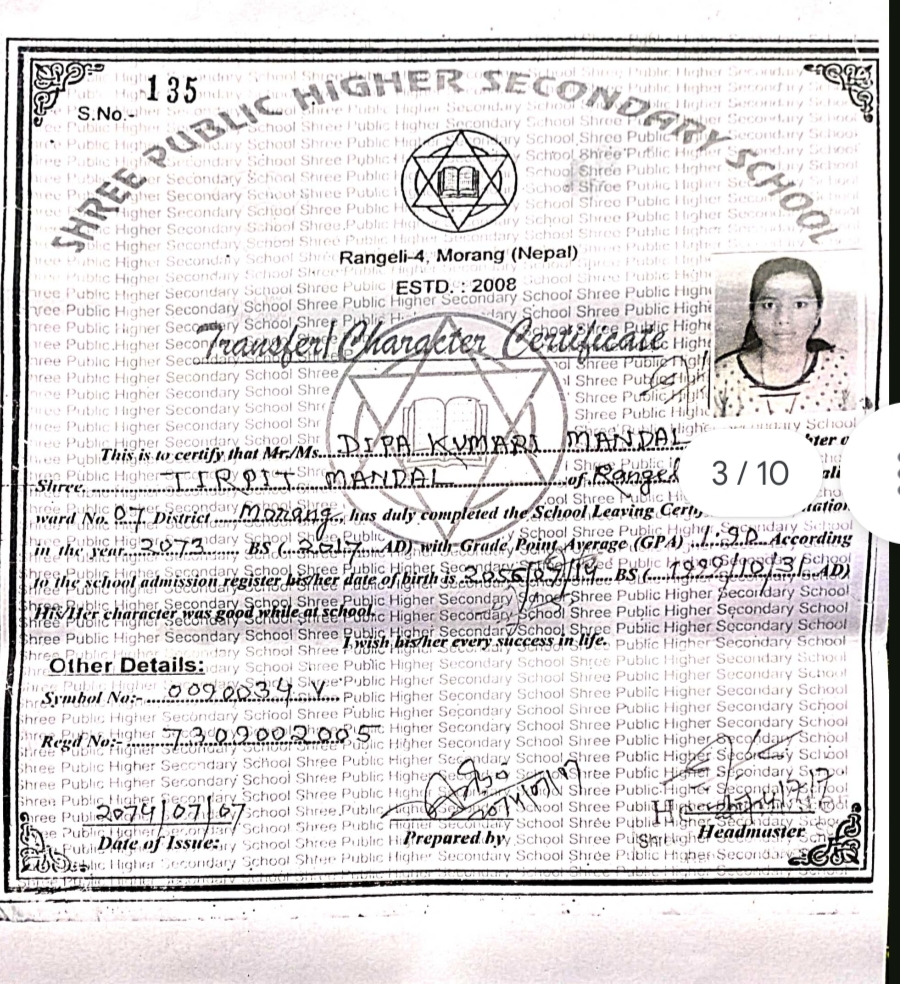 S.No.- 135
SHREE PUBLIC HIGHER SECONDARY SCHOOL
Rangeli-4, Morang (Nepal)
ESTD. : 2008
Transfer/Character Certificate
This is to certify that Mr./Ms. DIPA KUMARI MANDAL
Shree. TIRPIT MANDAL of Rangeli
ward No. 07 District Morang, has duly completed the School Leaving
in the year 2073 BS (2017 AD) with Grade Point Average (GPA) 1.90 According
to the school admission register his/her date of birth is 2056/09/14 BS (1999/10/3 AD)
His/Her character was good while at school.
I wish his/her every success in life.
Other Details:
Symbol No:- 0090034 V
Regd No:- 7309002005
2074/07/07
Date of Issue:
Prepared by
Headmaster
3 / 10